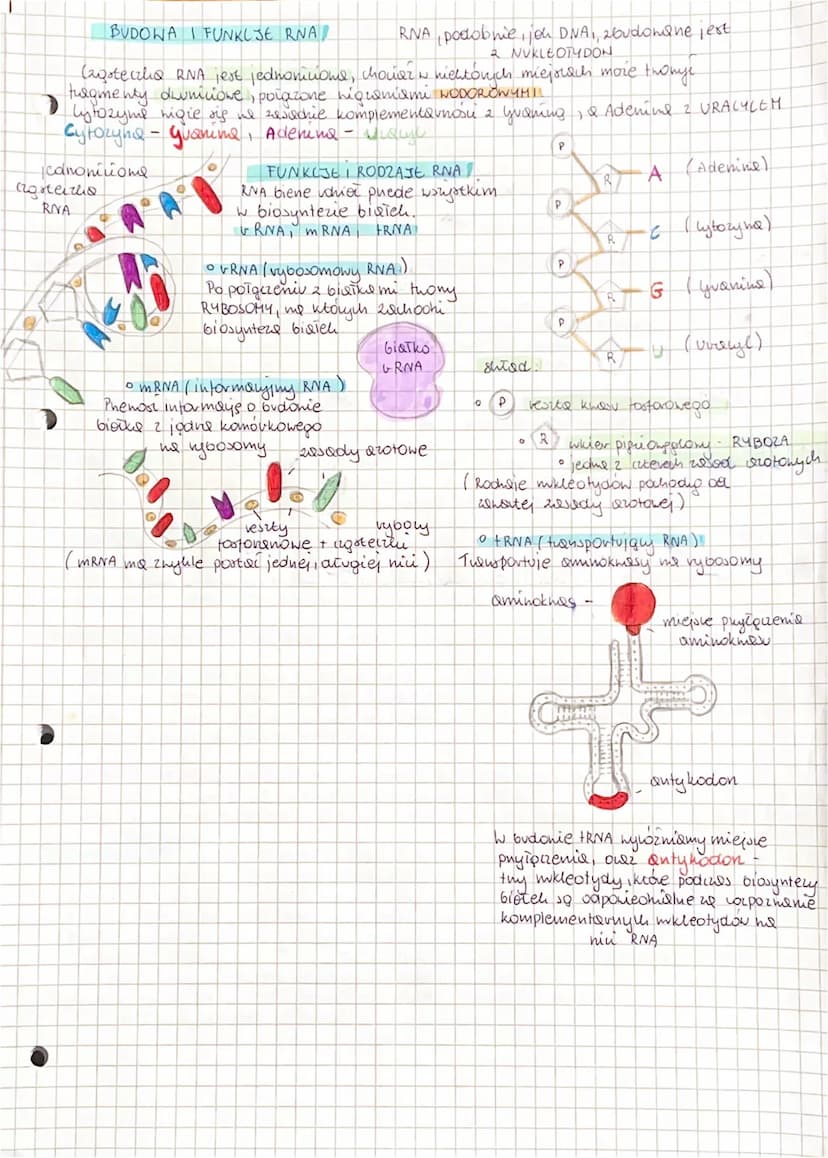 BUDOWA I FUNKCJE RNA
RNA, podobnie, jak DNA, zbudowane jest
z NUKLEOTYDÓW
Cząsteczka RNA jest jednoniciowa, chociaż w niektórych miejscach może tworzyć
fragmenty dwuniciowe, połączone wiązaniami WODOROWYMI
Cytozyna wiąże się na zasadzie komplementarności z Guaniną, a Adenina z URACYLEM
Cytozyna - Guanina, Adenina - Uracyl
jednoniciowa
cząsteczka
RNA
FUNKCJE i RODZAJE RNA
RNA bierze udział przede wszystkim
w biosyntezie białek.
rRNA, mRNA, tRNA
rRNA (rybosomowy RNA)
Po połączeniu z białkami tworzy
RYBOSOMY, na których zachodzi
biosynteza białek
białko
rRNA
mRNA (informacyjny RNA)
Przenosi informację o budowie
białka z jądra komórkowego
na rybosomy
zasady azotowe
reszty
fosforanowe + cząsteczki
rybozy
(mRNA ma zwykle postać jednej, długiej nici)
P
R
A (Adenina)
P
R
C (Cytozyna)
P
R
G (Guanina)
P
R
U (Uracyl)
skład:
P reszta kwasu fosforowego
R cukier pięciowęglowy - RYBOZA
jedna z czterech zasad azotowych
(Rodzaje nukleotydów pochodzą od
zawartej zasady azotowej)
tRNA (transportujący RNA)
Transportuje aminokwasy na rybosomy
aminokwas -
miejsce przyłączenia
aminokwasu
antykodon
W budowie tRNA wyróżniamy miejsce
przyłączenia, oraz antykodon -
trzy nukleotydy, które podczas biosyntezy
białek są odpowiedzialne za rozpoznanie
komplementarnych nukleotydów na
nici RNA